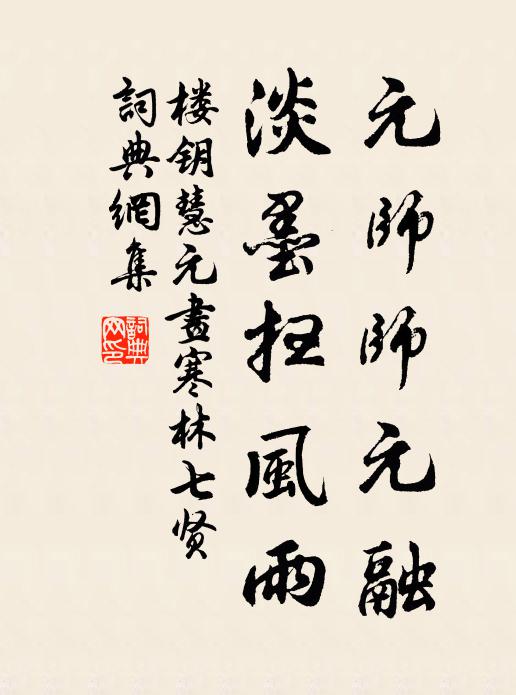 元師師元融
淡墨扫風雨
楼钥慧元畫寒林七贤
詞典網集
詞典网印